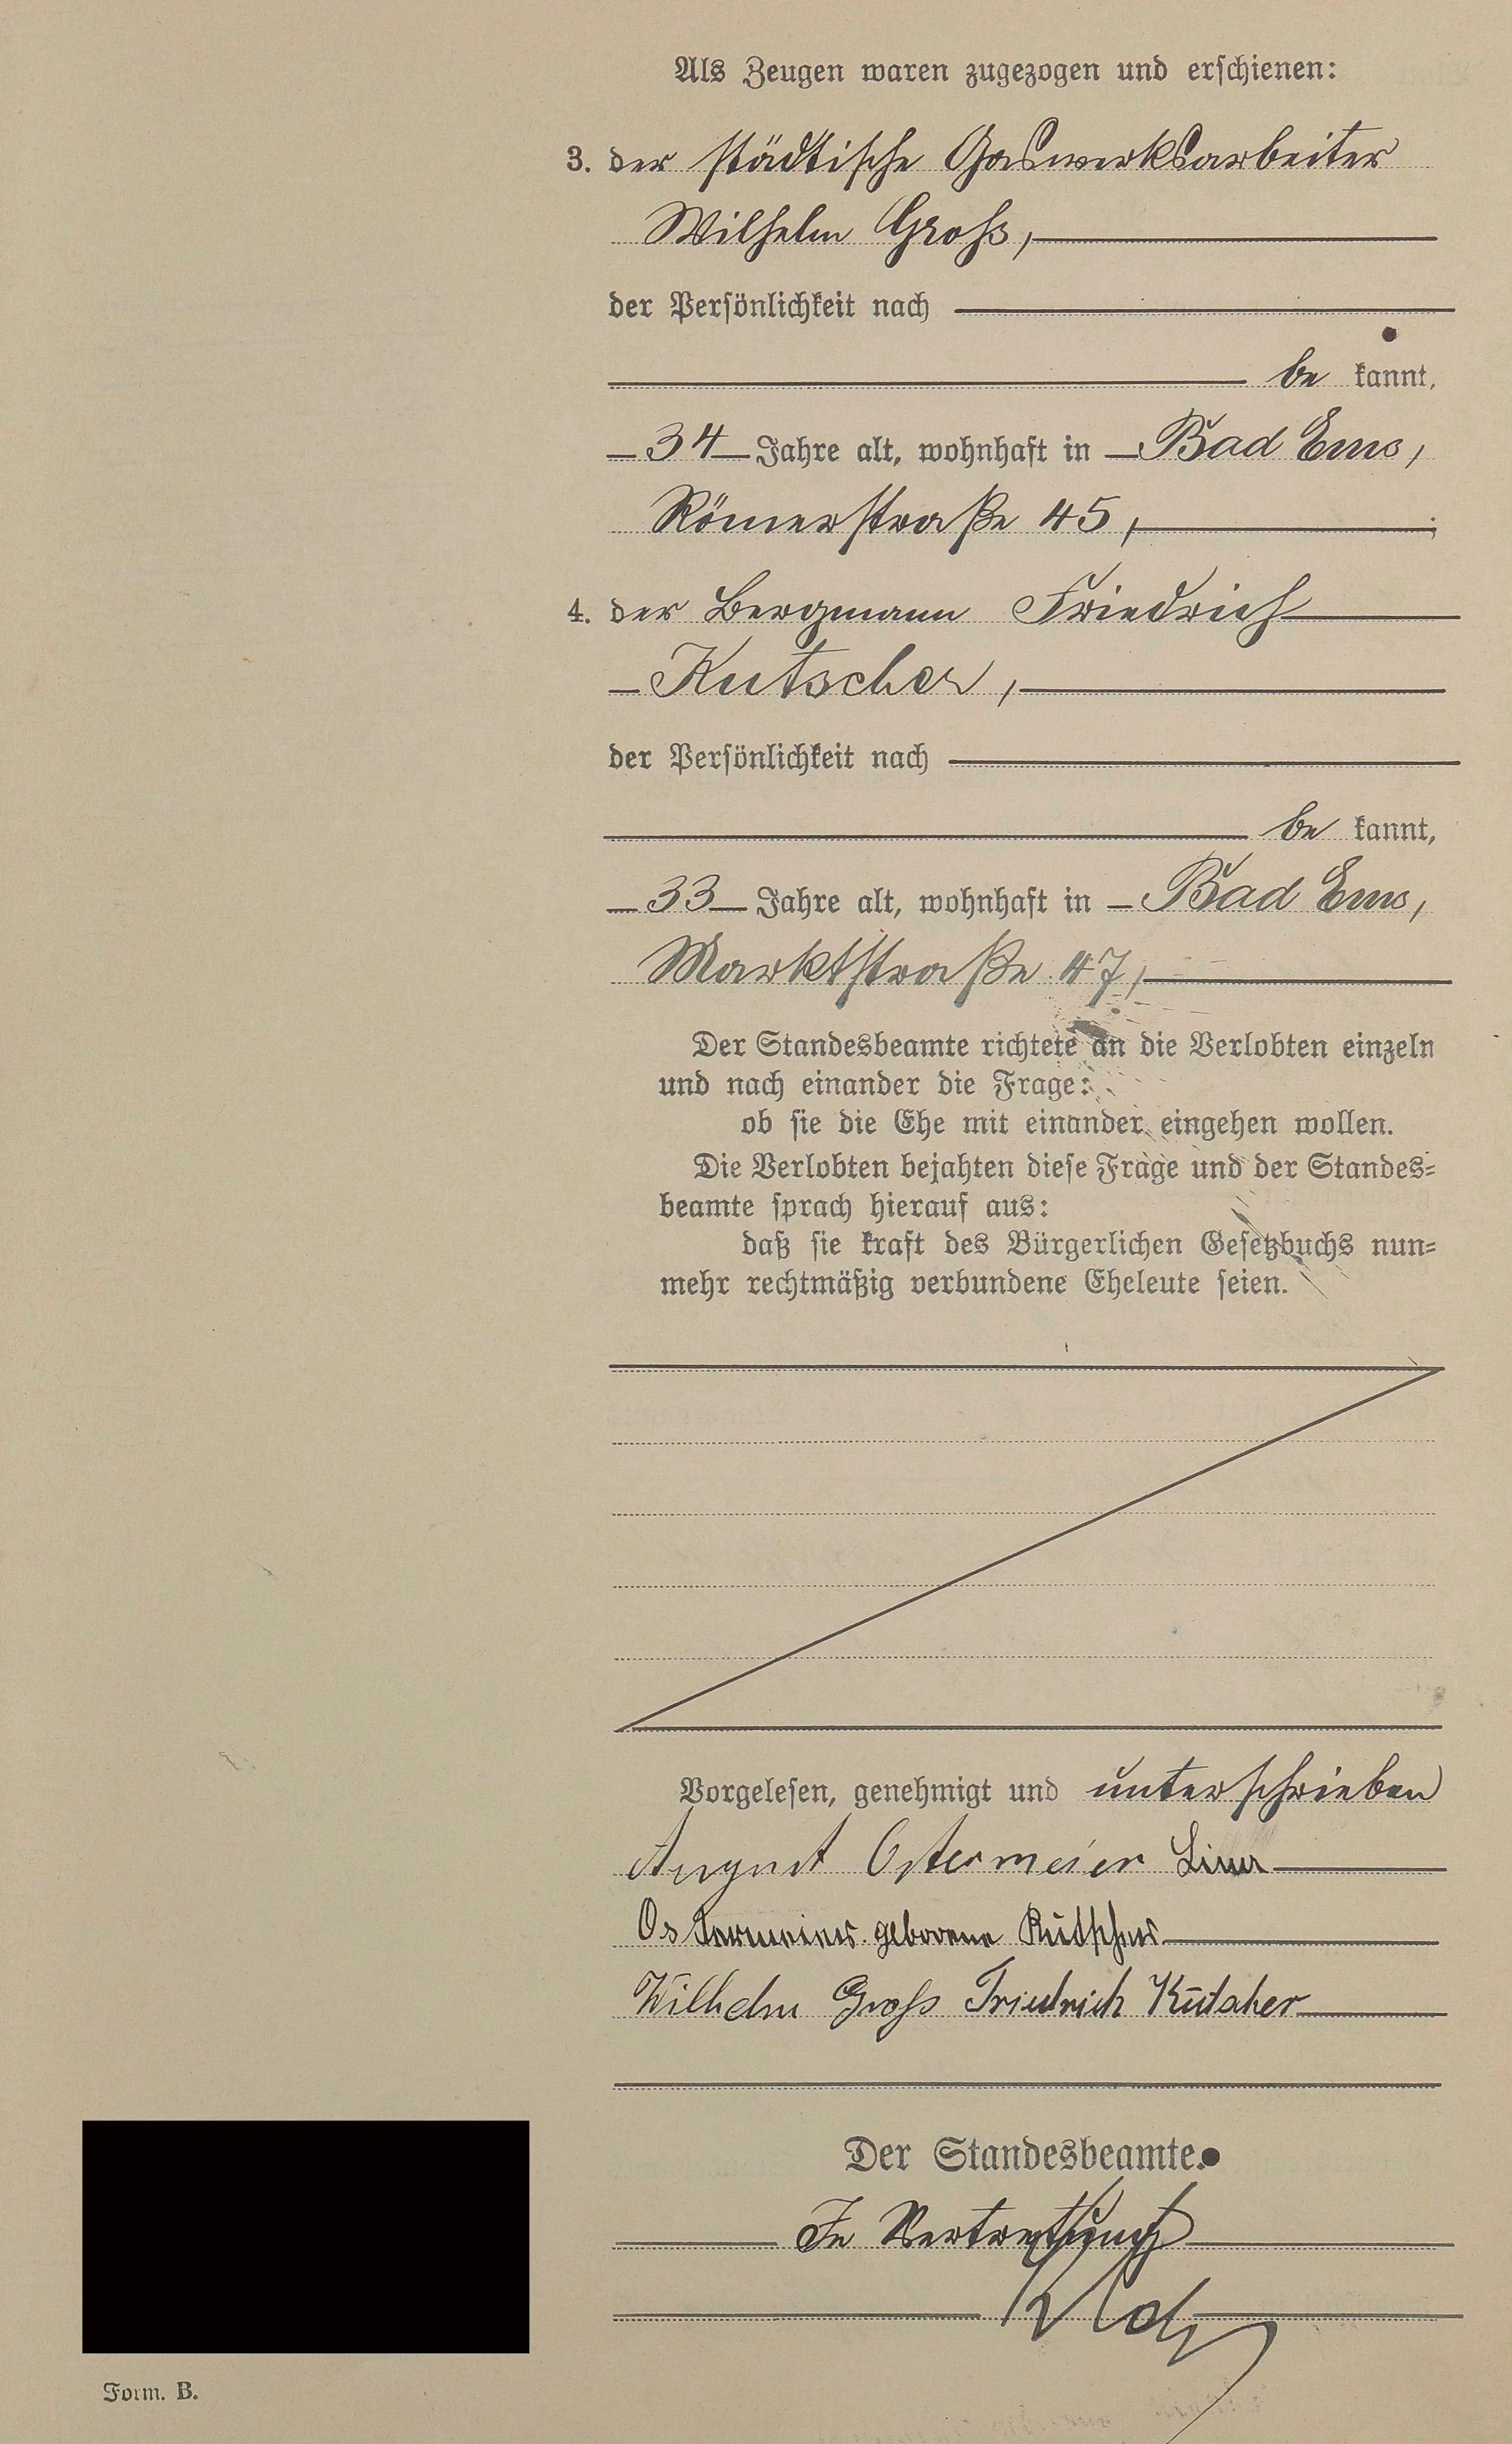 Als Zeugen waren zugezogen und erschienen:
3. der städtische Gaswerksarbeiter
Wilhelm Groß,
der Persönlichkeit nach
be kannt,
34 Jahre alt, wohnhaft in Bad Ems,
Römerstraße 45,;
4. der Bergmann Friedrich
Kutscher,
der Persönlichkeit nach
be kannt,
33 Jahre alt, wohnhaft in Bad Ems,
Marktstraße 47,
Der Standesbeamte richtete an die Verlobten einzeln
und nach einander die Frage:
ob sie die Ehe mit einander eingehen wollen.
Die Verlobten bejahten diese Frage und der Standes-
beamte sprach hierauf aus:
daß sie kraft des Bürgerlichen Gesetzbuchs nun-
mehr rechtmäßig verbundene Eheleute seien.
Vorgelesen, genehmigt und unterschrieben
August Ostermeier
Ostermeier geborene Kutscher
Wilhelm Groß Friedrich Kutscher
Der Standesbeamte.
In Vertretung
Form. B.